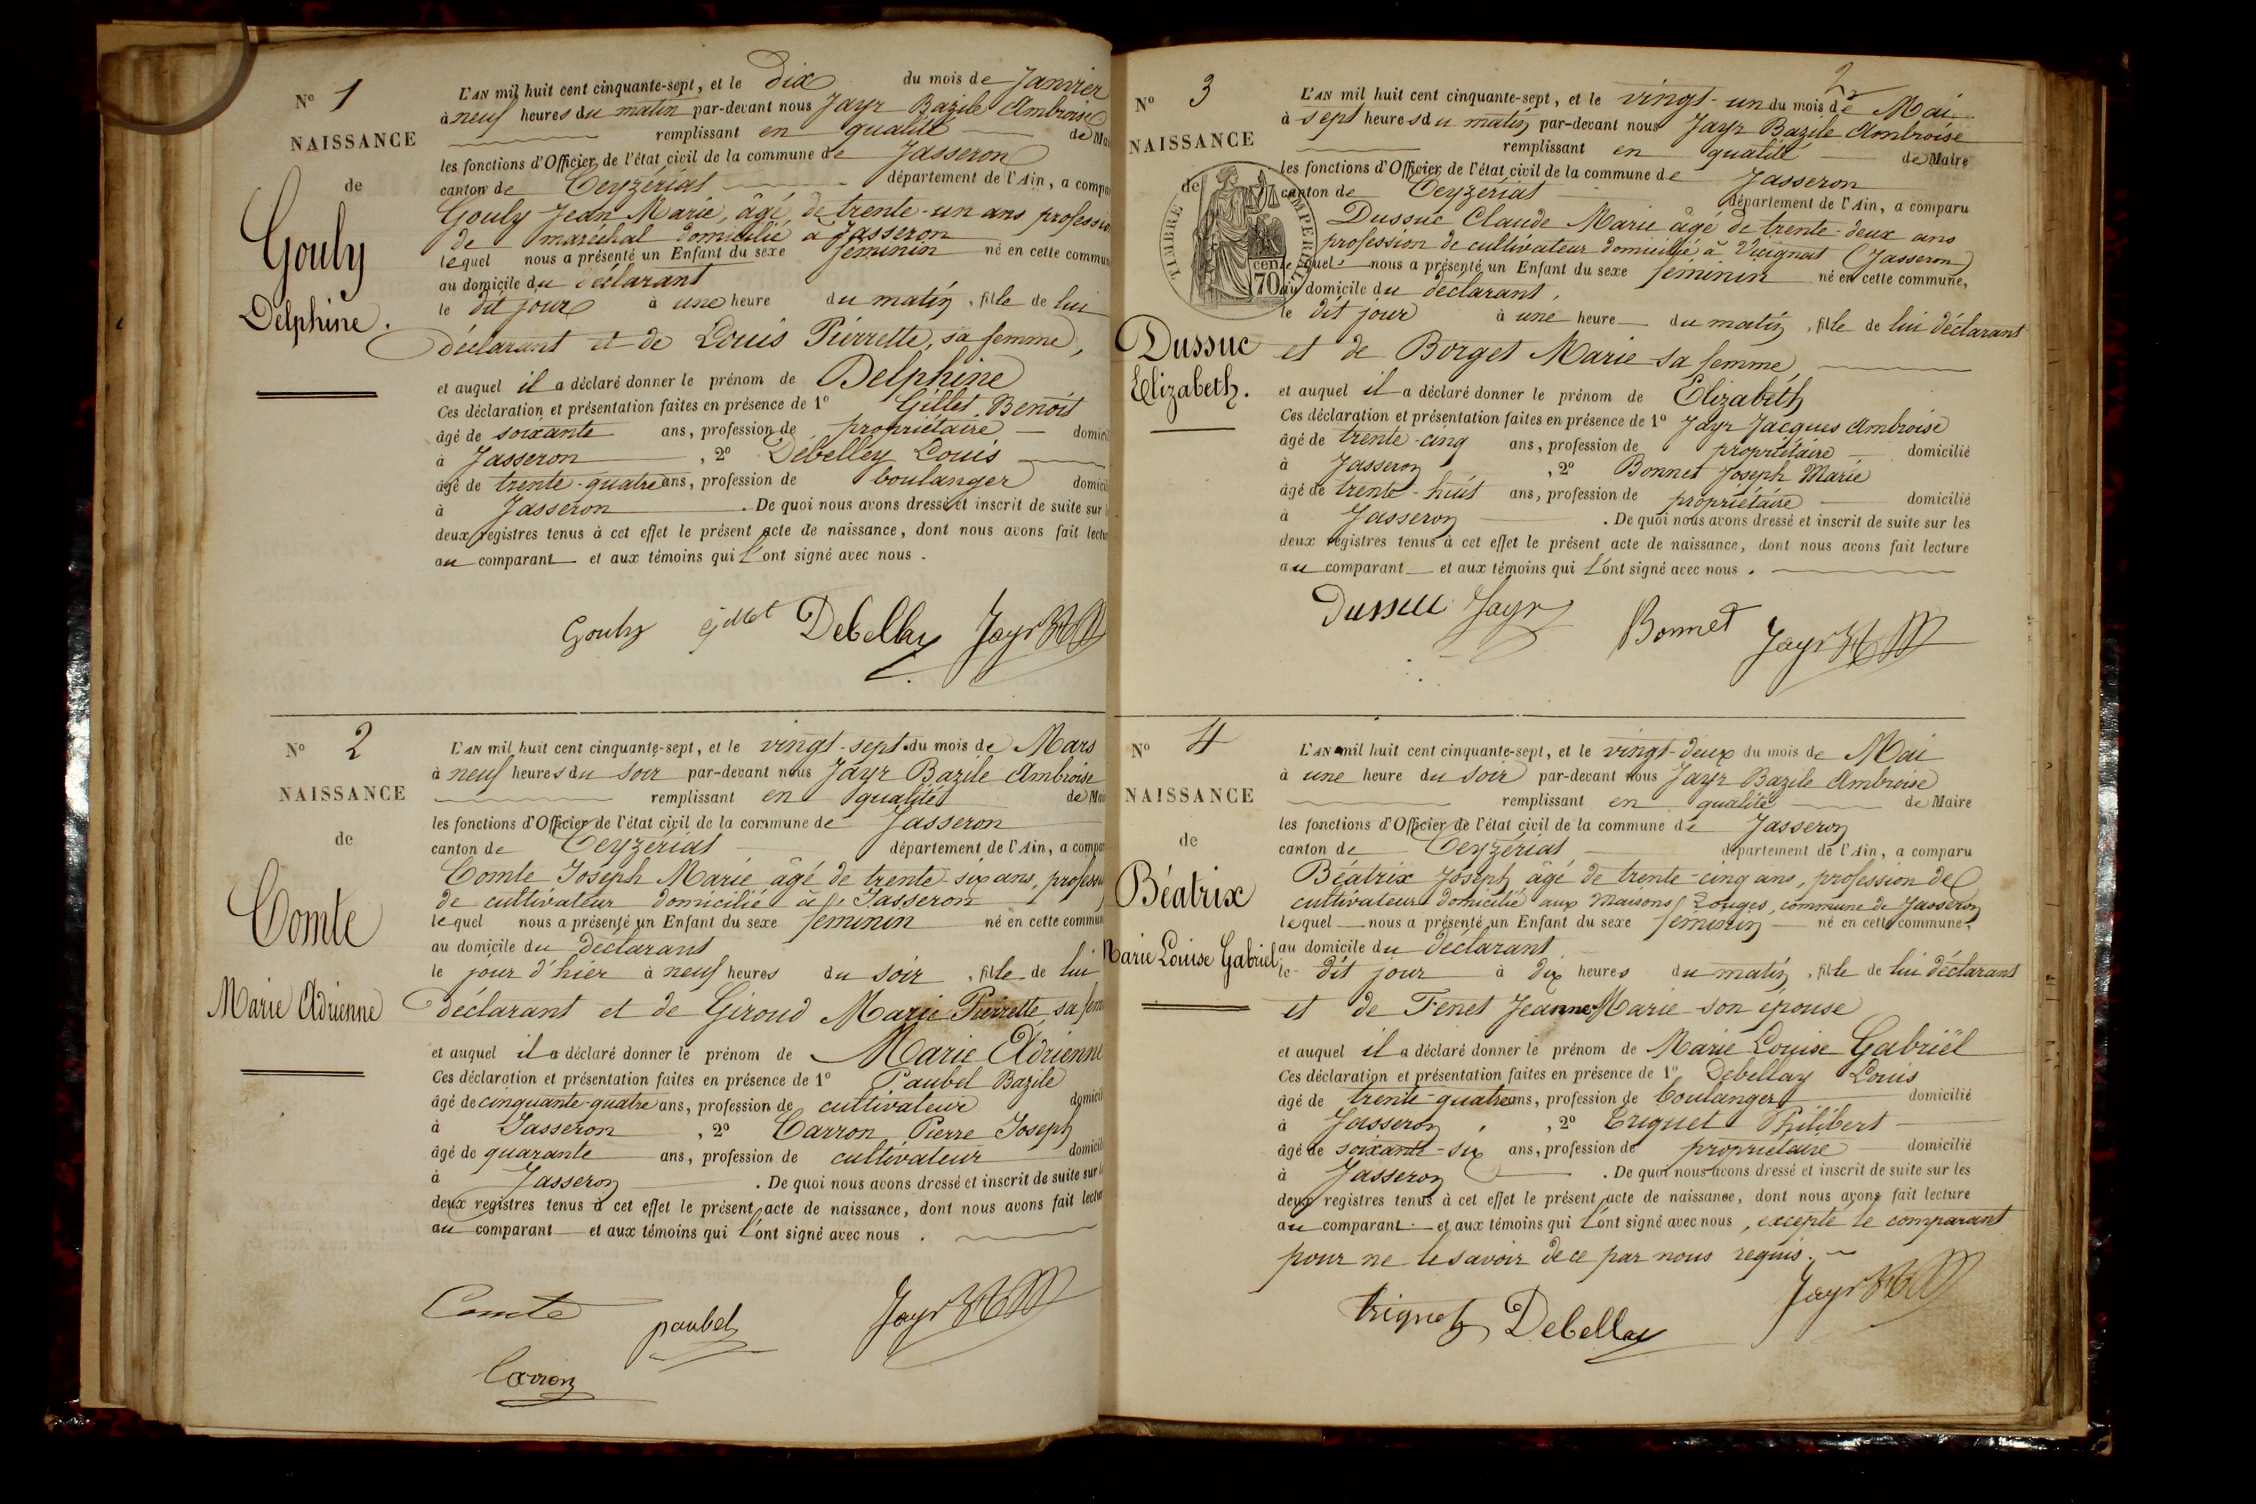 N° 1
NAISSANCE
de
Gouly
Delphine.
L'AN mil huit cent cinquante-sept, et le dix du mois de Janvier
à neuf heures du matin par-devant nous Jayr Bazile Ambroise
remplissant en qualité de Ma
les fonctions d'Officier de l'état civil de la commune de Jasseron
canton de Ceyzériat département de l'Ain, a compa
Gouly Jean Marie, âgé de trente-un ans profession
de maréchal domicilié à Jasseron
lequel nous a présenté un Enfant du sexe féminin né en cette commun
au domicile du déclarant
le dit jour à une heure du matin, fille de lui
déclarant et de Louis Pierrette, sa femme,
et auquel il a déclaré donner le prénom de Delphine
Ces déclaration et présentation faites en présence de 1° Gillet Benoit
âgé de soixante ans, profession de propriétaire domicil
à Jasseron, 2° Debelley Louis
âgé de trente-quatre ans, profession de boulanger domicil
à Jasseron. De quoi nous avons dressé et inscrit de suite sur l
deux registres tenus à cet effet le présent acte de naissance, dont nous avons fait lectu
au comparant et aux témoins qui l'ont signé avec nous.
Gouly gillet Debellay Jayr
N° 2
NAISSANCE
de
Comte
Marie Adrienne
L'AN mil huit cent cinquante-sept, et le vingt-sept du mois de Mars
à neuf heures du soir par-devant nous Jayr Bazile Ambroise
remplissant en qualité de Mai
les fonctions d'Officier de l'état civil de la commune de Jasseron
canton de Ceyzériat département de l'Ain, a compar
Comte Joseph Marie âgé de trente-six ans, profession
de cultivateur domicilié à Jasseron
lequel nous a présenté un Enfant du sexe féminin né en cette commun
au domicile du déclarant
le jour d'hier à neuf heures du soir, fille de lui
déclarant et de Giroud Marie Pierrette, sa fem
et auquel il a déclaré donner le prénom de Marie Adrienne
Ces déclaration et présentation faites en présence de 1° Paubel Bazile
âgé de cinquante-quatre ans, profession de cultivateur domicil
à Jasseron, 2° Carron Pierre Joseph
âgé de quarante ans, profession de cultivateur domicili
à Jasseron. De quoi nous avons dressé et inscrit de suite sur l
deux registres tenus à cet effet le présent acte de naissance, dont nous avons fait lectur
au comparant et aux témoins qui l'ont signé avec nous.
Comte paubel Jayr
Carron
2
N° 3
NAISSANCE
de
TIMBRE IMPERIAL
70 cent
Dussuc
Elizabeth.
L'AN mil huit cent cinquante-sept, et le vingt-un du mois de Mai
à sept heures du matin par-devant nous Jayr Bazile Ambroise
remplissant en qualité de Maire
les fonctions d'Officier de l'état civil de la commune de Jasseron
canton de Ceyzériat département de l'Ain, a comparu
Dussuc Claude Marie âgé de trente-deux ans
profession de cultivateur domicilié à (Jasseron)
lequel nous a présenté un Enfant du sexe féminin né en cette commune,
au domicile du déclarant,
le dit jour à une heure du matin, fille de lui déclarant
et de Borget Marie sa femme,
et auquel il a déclaré donner le prénom de Elizabeth
Ces déclaration et présentation faites en présence de 1° Jayr Jacques Ambroise
âgé de trente-cinq ans, profession de propriétaire domicilié
à Jasseron, 2° Bonnet Joseph Marie
âgé de trente-huit ans, profession de propriétaire domicilié
à Jasseron. De quoi nous avons dressé et inscrit de suite sur les
deux registres tenus à cet effet le présent acte de naissance, dont nous avons fait lecture
au comparant et aux témoins qui l'ont signé avec nous.
Dussuc Jayr Bonnet Jayr
N° 4
NAISSANCE
de
Béatrix
Marie Louise Gabriel
L'AN mil huit cent cinquante-sept, et le vingt-deux du mois de Mai
à une heure du soir par-devant nous Jayr Bazile Ambroise
remplissant en qualité de Maire
les fonctions d'Officier de l'état civil de la commune de Jasseron
canton de Ceyzériat département de l'Ain, a comparu
Béatrix Joseph âgé de trente-cinq ans, profession de
cultivateur domicilié aux Maisons Rouges, commune de Jasseron
lequel nous a présenté un Enfant du sexe féminin né en cette commune,
au domicile du déclarant
le dit jour à dix heures du matin, fille de lui déclarant
et de Fenet Jeanne Marie son épouse
et auquel il a déclaré donner le prénom de Marie Louise Gabriël
Ces déclaration et présentation faites en présence de 1° Debellay Louis
âgé de trente-quatre ans, profession de boulanger domicilié
à Jasseron, 2° Triquet Philibert
âgé de soixante-six ans, profession de propriétaire domicilié
à Jasseron. De quoi nous avons dressé et inscrit de suite sur les
deux registres tenus à cet effet le présent acte de naissance, dont nous avons fait lecture
au comparant et aux témoins qui l'ont signé avec nous, excepté le comparant
pour ne le savoir de ce par nous requis.
triquet Debellay Jayr